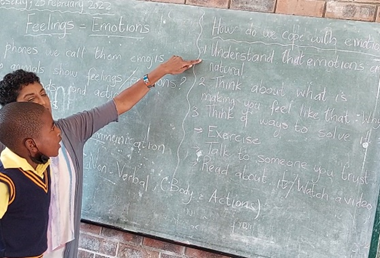 February 2022
Feelings = Emotions
phones we call them emojis
show feelings
and actions
Communication
Non-Verbal (Body = Actions)
How do we Cope with
1 Understand that emotions
natural
2 Think about what is
making you feel like that
3 Think of ways to solve
= Exercise
Talk to someone you trust
Read about it/Watch a video